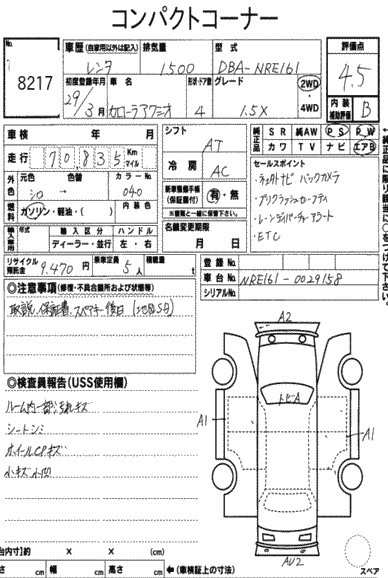 コンパクトコーナー
No. 8217
車歴(自家用以外は記入) レンタ
排気量 1500
型式 DBA-NRE161
評価点 4.5
内装補助評価 B
初度登録年月 29/3月
車名 カローラアクシオ
形状・ドア数 4
グレード 1.5X
2WD ・ 4WD
車検 年 月
シフト AT
純正品 SR 純AW PS PW
カワ TV ナビ エアB
走行 70835 Km マイル
冷房 AC
外色 元色 シロ → 色替 カラーNo. 040
燃料 ガソリン・軽油・( ) 内装色
新車整備手帳(保証書付) 有・無
※書類と一緒に保管下さい。
セールスポイント
・ネットナビ バックカメラ
・プリクラッシュセーフティ
・レーンディパーチャーアラート
・ETC
輸入車用 年式 輸入区分 ハンドル
ディーラー・並行 左・右
名義変更期限 月 日
リサイクル預託金 9,470円
乗車定員 5人
積載量 t
登録No.
車台No. NRE161-0029158
シリアルNo.
◎注意事項(修復・不具合箇所および状態等)
取説、保証書、スペアキー後日(地図SD)
◎検査員報告(USS使用欄)
ルーム内一部汚れキズ
シートシミ
ホイールCPキズ
小キズ小凹
A2
トビA
A1
A1
AU2
スペア
台内寸)約 × × (cm)
さ cm 幅 cm 高さ cm ←(車検証上の寸法)